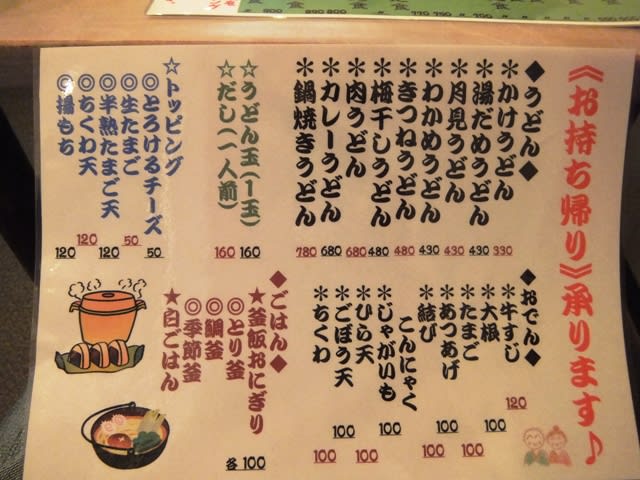 《お持ち帰り》承ります♪
◆うどん◆
＊かけうどん 330
＊湯だめうどん 430
＊月見うどん 430
＊わかめうどん 430
＊きつねうどん 480
＊梅干しうどん 480
＊肉うどん 680
＊カレーうどん 680
＊鍋焼きうどん 780
☆うどん玉(1玉) 160
☆だし(一人前) 160
☆トッピング
◎とろけるチーズ 50
◎生たまご 50
◎半熟たまご天 120
◎ちくわ天 120
◎揚もち 120
◆おでん◆
＊牛すじ 120
＊大根 100
＊たまご 100
＊あつあげ 100
＊結び
こんにゃく 100
＊じゃがいも 100
＊ひら天 100
＊ごぼう天 100
＊ちくわ 100
◆ごはん◆
★釜飯おにぎり
◎とり釜
◎鯛釜
◎季節釜
★白ごはん
各100